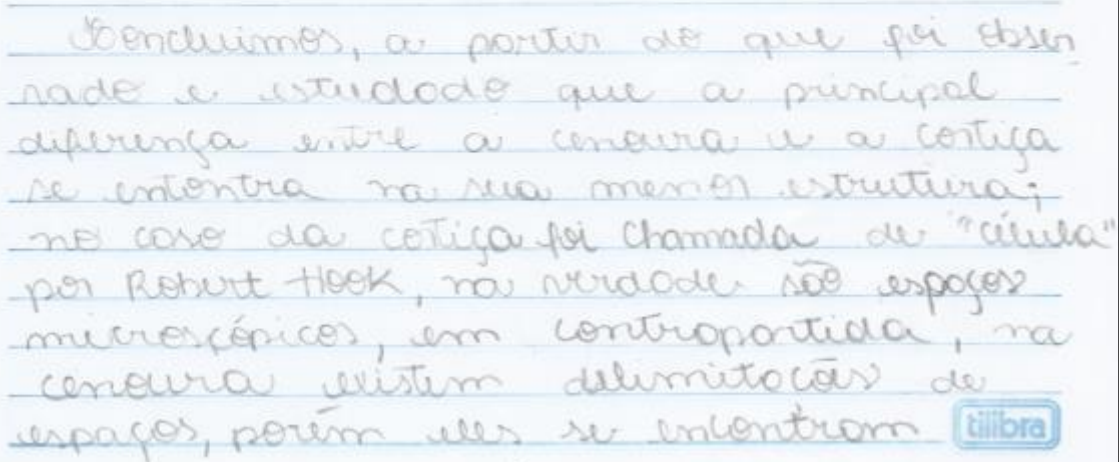 Concluimos, a partir do que foi obser
vado e estudado que a principal
diferença entre a cenoura e a cortiça
se encontra na sua menor estrutura;
no caso da cortiça foi chamada de "célula"
por Robert Hook, na verdade são espaços
microscópicos, em contropartida, na
cenoura existem delimitações de
espaços, porém eles se encontram
tilibra